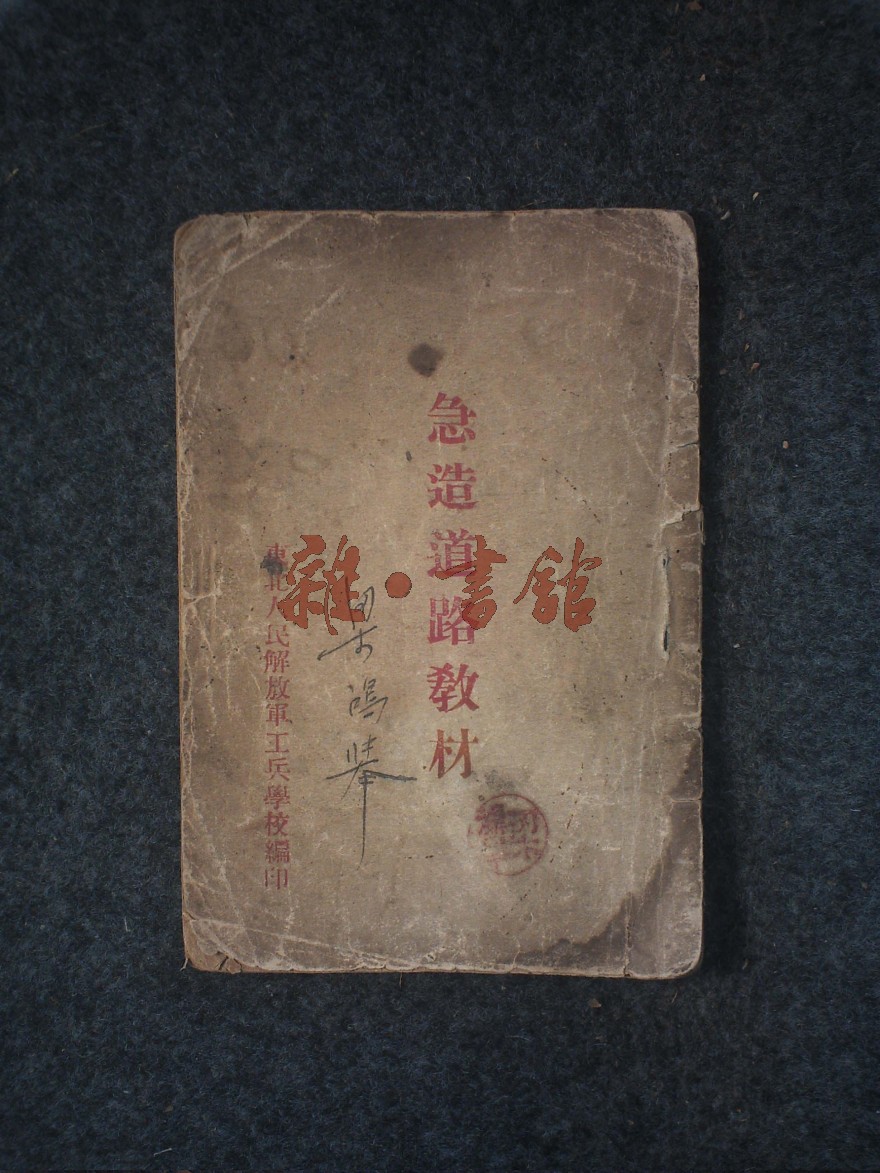 急造道路教材
東北人民解放軍工兵學校編印
雜·書館